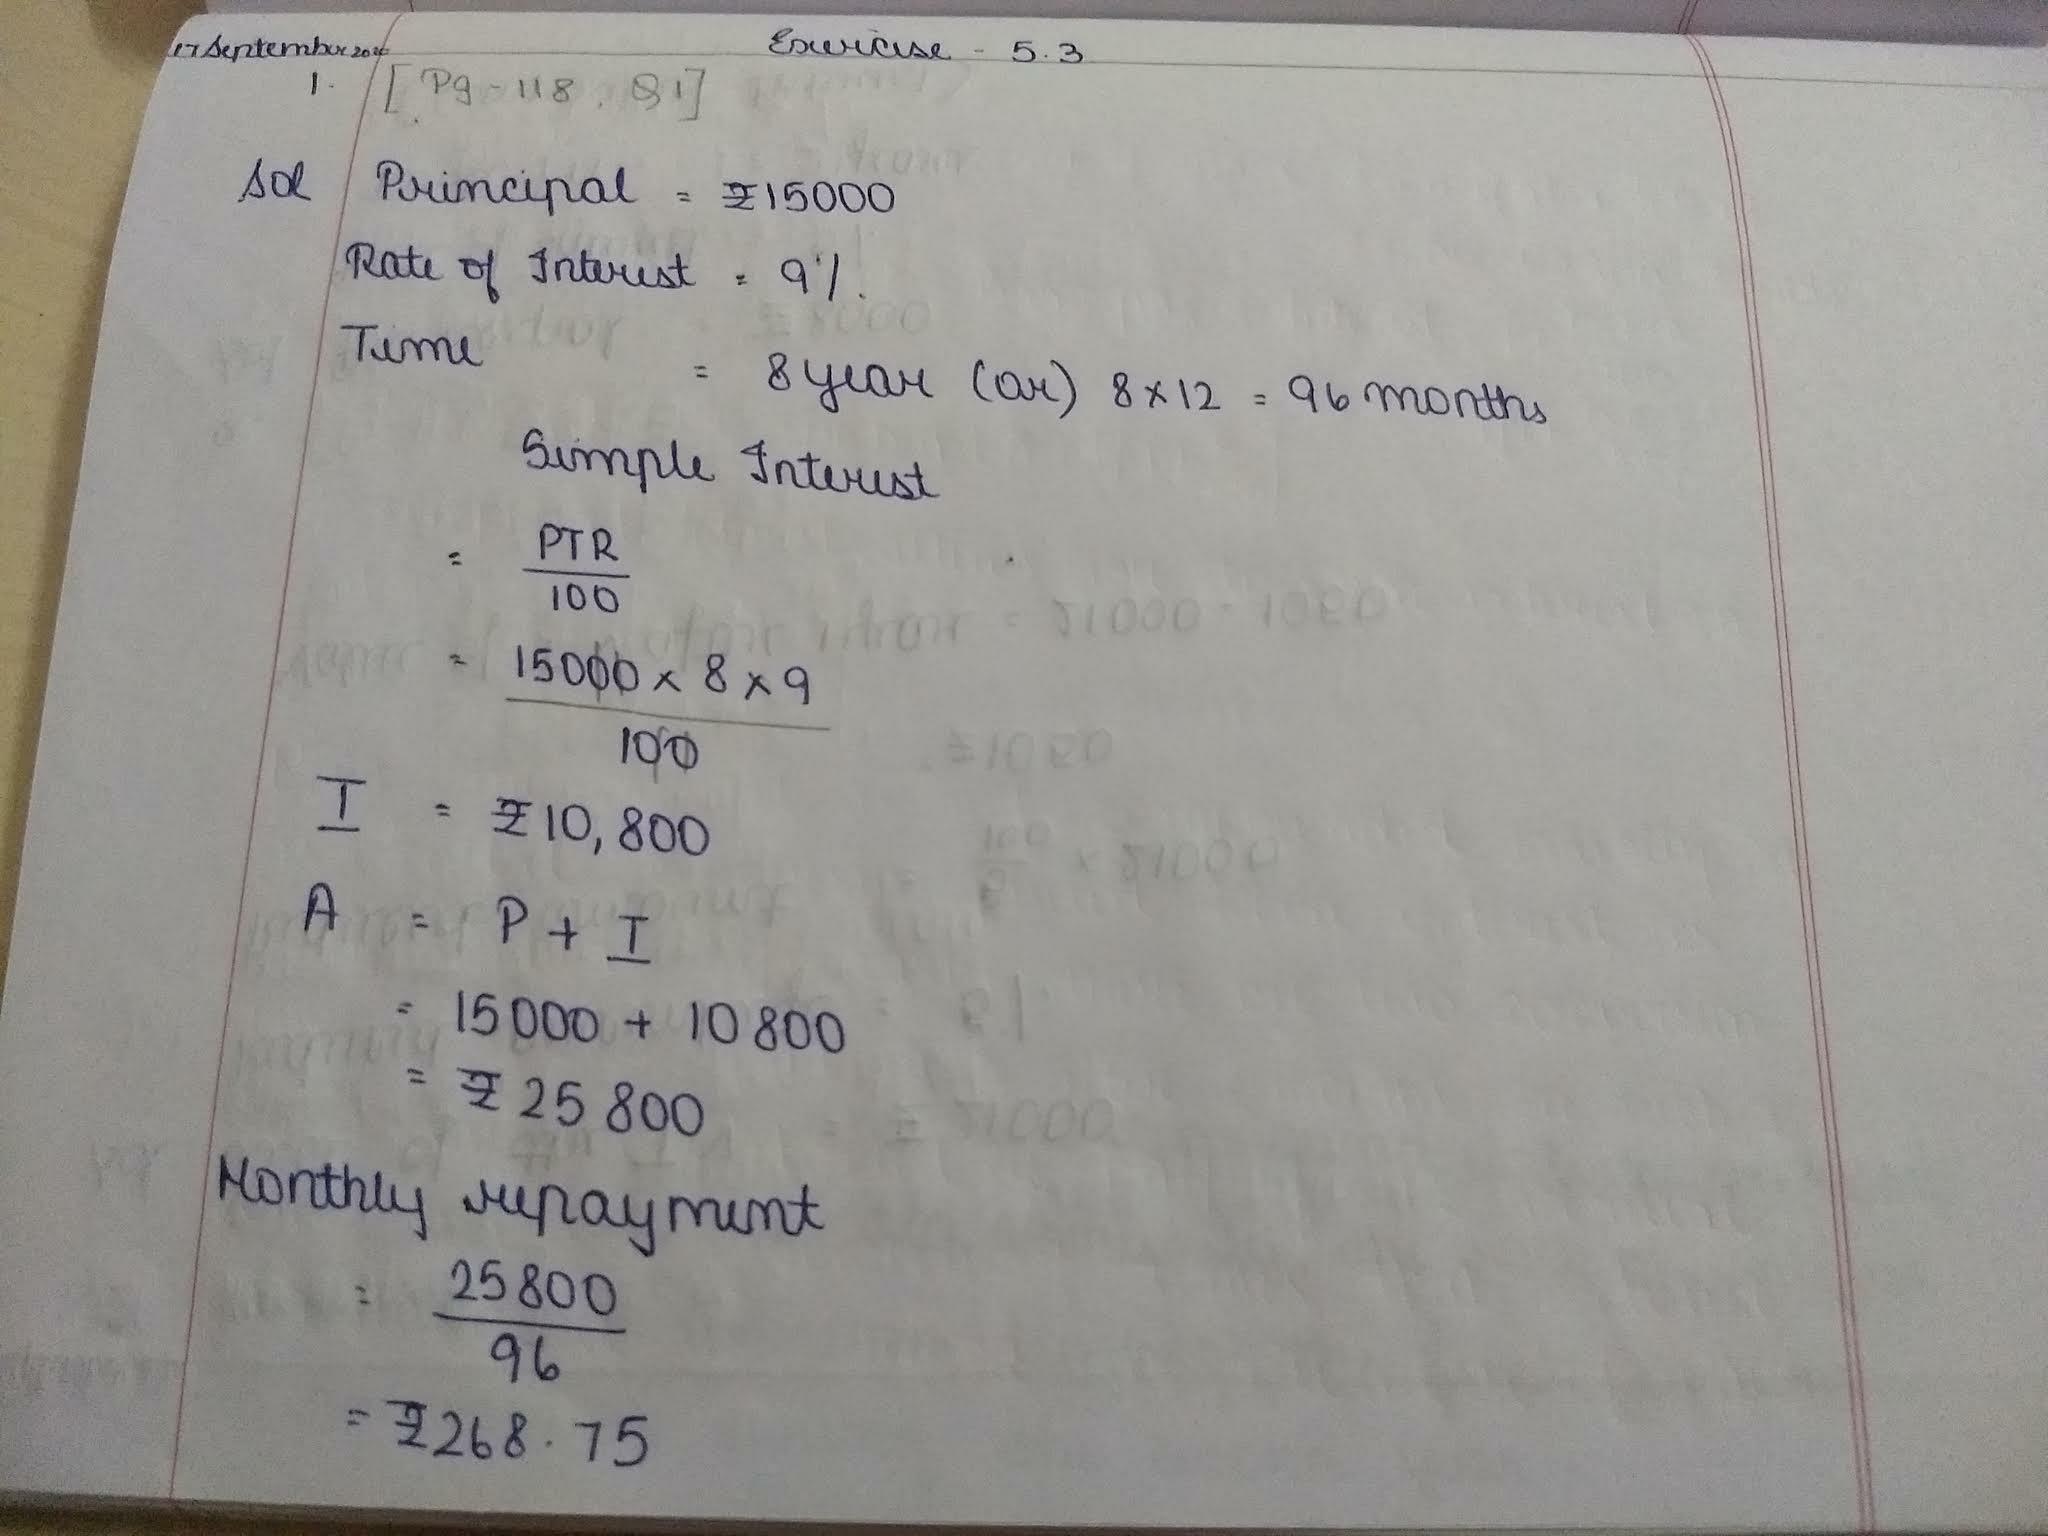 17 September 20
Exercise - 5.3
1. [Pg-118, Q1]
Sol Principal = ₹15000
Rate of Interest = 9%.
Time = 8 year (or) 8 × 12 = 96 months
Simple Interest
= PTR
100
= 15000 × 8 × 9
100
I = ₹10,800
A = P + I
= 15000 + 10800
= ₹25800
Monthly repayment
= 25800
96
= ₹268.75